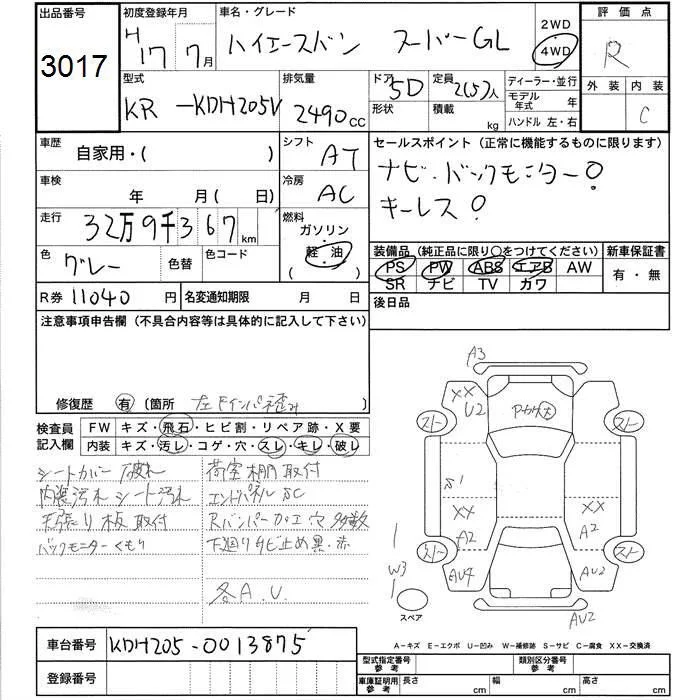 出品番号
3017
初度登録年月
H17年7月
車名・グレード
ハイエースバン スーパーGL
2WD
4WD
評価点
R
外装 内装
C
型式
KR-KDH205V
排気量
2490cc
ドア 5D
形状
定員 2(5)人
積載 kg
ディーラー・並行
モデル年式 年
ハンドル 左・右
車歴
自家用・( )
シフト
AT
セールスポイント(正常に機能するものに限ります)
ナビ・バックモニター!
キーレス!
車検
年 月(日)
冷房
AC
走行
32万9千367km
燃料
ガソリン
軽油
( )
色
グレー
色替
色コード
装備品(純正品に限り○をつけてください)
PS PW ABS エアB AW
SR ナビ TV カワ
新車保証書
有・無
R券 11040円
名変通知期限 月 日
後日品
注意事項申告欄(不具合内容等は具体的に記入して下さい)
修復歴 有 〔箇所 左Fインパネ歪み 〕
検査員記入欄
FW キズ・飛石・ヒビ割・リペア跡・X要
内装 キズ・汚し・コゲ・穴・スレ・キレ・破し
シートカバー破れ
内装汚れ シート汚れ
床張り 板取付
バックモニターくもり
荷室棚取付
エンドパネルSC
Rバンパー加工穴多数
下廻りサビ止め黒・赤
各A.U.
A3
XX
U2
スト
スト
S1
XX
XX
A2
A2
スト
スト
W3
AU4
AU2
AU2
スペア
A-キズ E-エクボ U-凹み W-補修跡 S-サビ C-腐食 XX-交換済
車台番号
KDH205-0013875
登録番号
型式指定番号 参考
類別区分番号 参考
車庫証明用 参考
長さ cm
幅 cm
高さ cm